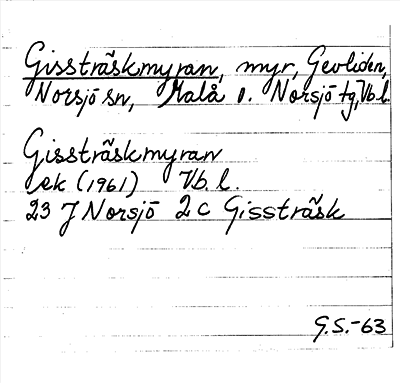 Gissträskmyran, myr, Gevliden,
Norsjö sn, Malå o. Norsjö tg, Vb. l.
Gissträskmyran
ek (1961) Vb. l.
23 J Norsjö 2 c Gissträsk
G.S.-63